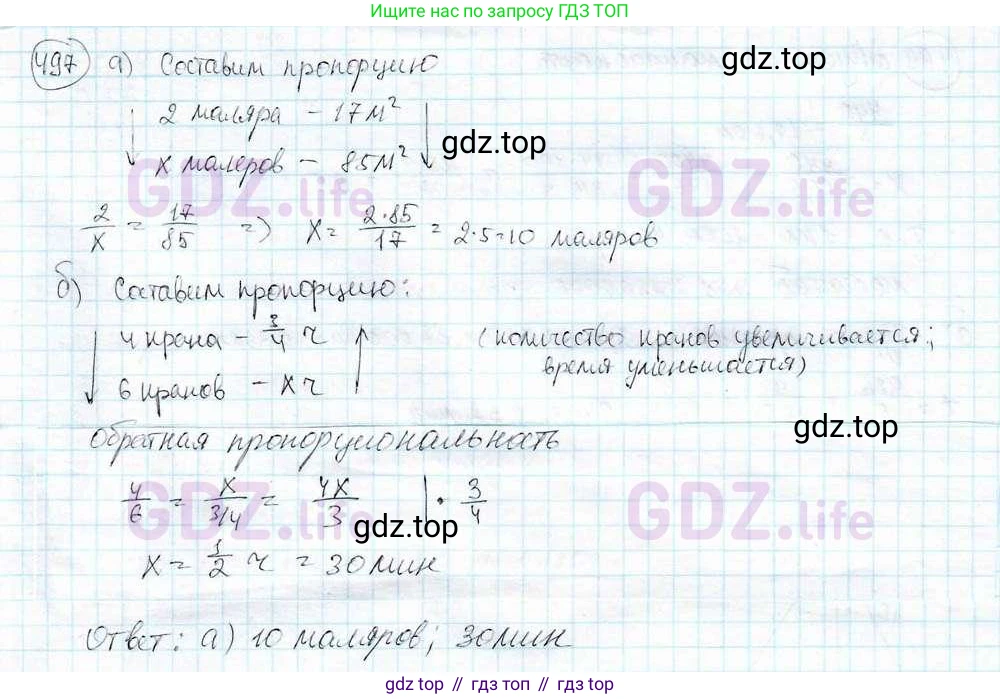 Ищите нас по запросу ГДЗ ТОП
497 а) Составим пропорцию
gdz.top
2 маляра - 17 м²
х малеров - 85 м²
gdz.top
GDZ.life GDZ.life
2/х = 17/85 => х = 2·85/17 = 2·5=10 маляров
б) Составим пропорцию:
4 крана - 3/4 ч (количество кранов увеличивается;
время уменьшается)
6 кранов - х ч
gdz.top
Обратная пропорциональность
4/6 = х/3/4 = 4х/3 | · 3/4
GDZ.life GDZ.life
gdz.top
х = 1/2 ч = 30 мин
Ответ: а) 10 маляров; 30 мин
gdz top // гдз топ // gdz top